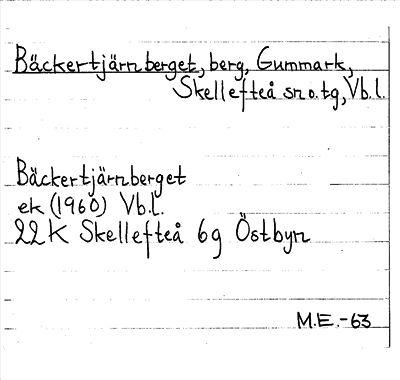 Bäckertjärnberget, berg, Gummark,
Skellefteå sn o. tg, Vb.l.
Bäckertjärnberget
ek (1960) Vb.l.
22K Skellefteå 6g Östbyn
M.E.-63